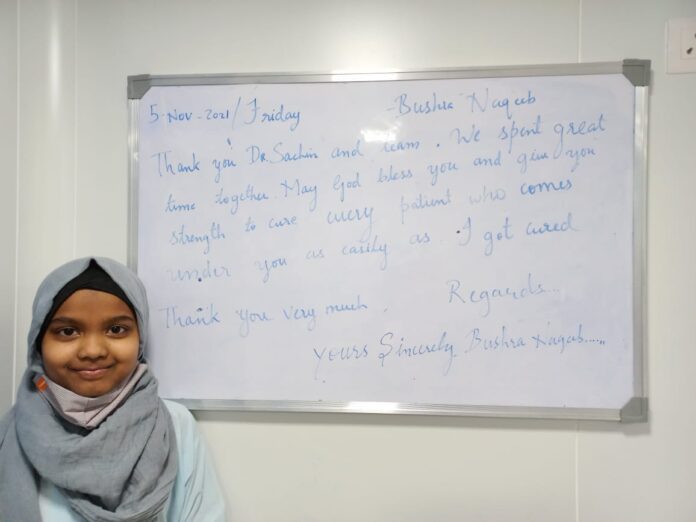 5-Nov-2021/Friday -Bushra Naqeeb
Thank you Dr. Sachin and team. We spent great
time together. May God bless you and give you
strength to cure every patient who comes
under you as easily as I got cured
Thank you very much. Regards...
Yours Sincerely, Bushra Naqeeb......